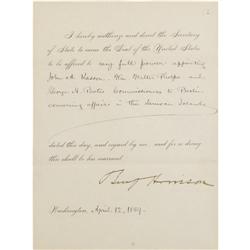 I hereby authorize and direct the Secretary
of State to cause the Seal of the United States
to be affixed to my full power appointing
John A. Kasson, Wm Walter Phelps and
George H. Bates Commissioners to Berlin
concerning affairs in the Samoan Islands
dated this day, and signed by me, and for so doing
this shall be his warrant.
Benj Harrison
Washington, April 12, 1889.